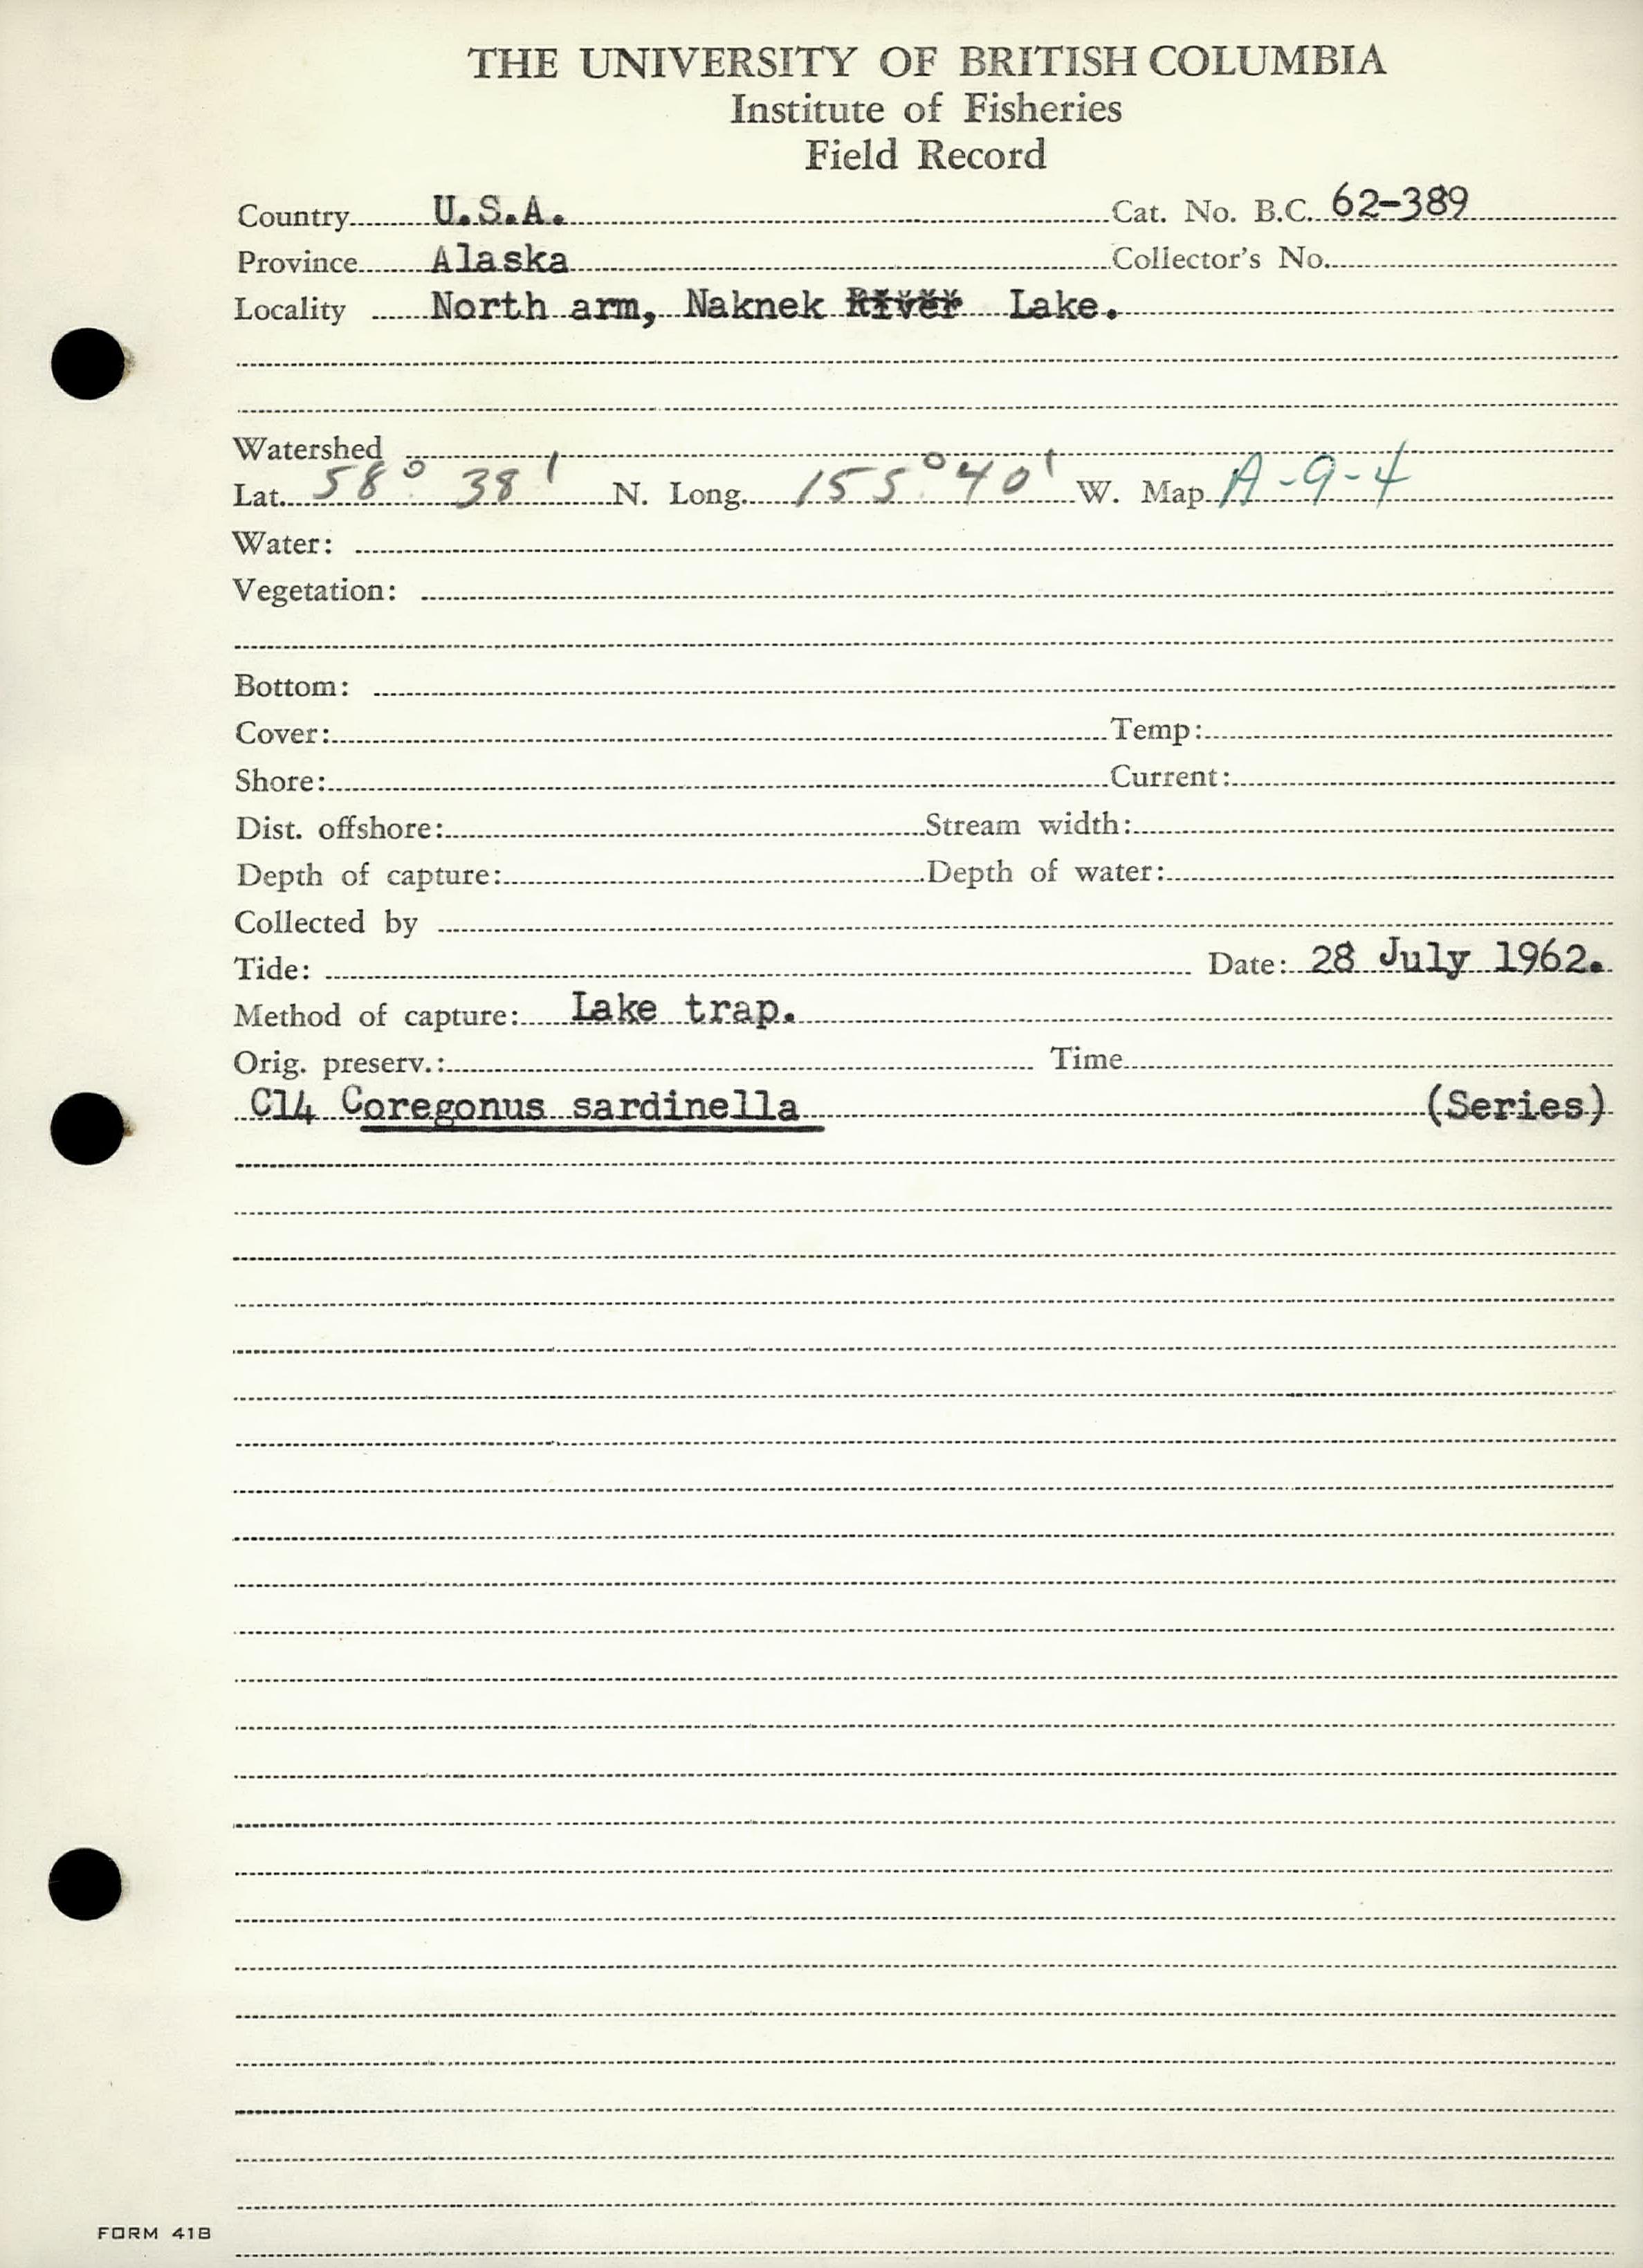 THE UNIVERSITY OF BRITISH COLUMBIA
Institute of Fisheries
Field Record
Country U.S.A. Cat. No. B.C. 62-389
Province Alaska Collector's No.
Locality North arm, Naknek River Lake.
Watershed
Lat. 58° 38' N. Long. 155° 40' W. Map A-9-4
Water:
Vegetation:
Bottom:
Cover: Temp:
Shore: Current:
Dist. offshore: Stream width:
Depth of capture: Depth of water:
Collected by
Tide: Date: 28 July 1962.
Method of capture: Lake trap.
Orig. preserv.: Time
C14 Coregonus sardinella (Series)
FORM 41B